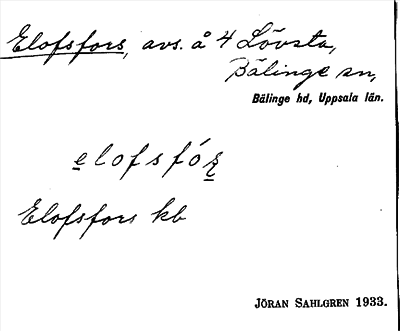 Elofsfors, avs. å 4 Lövsta,
Bälinge sn,
Bälinge hd, Uppsala län.
elofsfó
Elofsfors kb
JÖRAN SAHLGREN 1933.